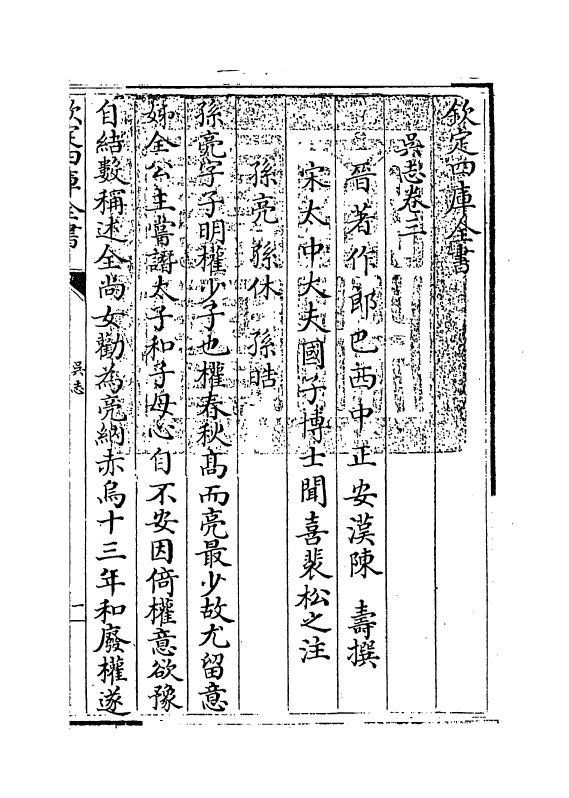 欽定四庫全書
吳志卷三
晉著作郎巴西中正安漢陳 壽撰
宋太中大夫國子博士聞喜裴松之注
孫亮 孫休 孫晧
孫亮字子明權少子也權春秋髙而亮最少故尤留意
姊全公主嘗譖太子和子母心自不安因倚權意欲豫
自結數稱述全尚女勸為亮納赤烏十三年和廢權遂
欽定四庫全書
吳志
一